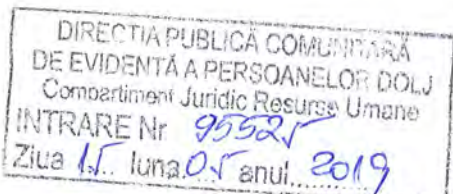 DIRECȚIA PUBLICĂ COMUNITARĂ
DE EVIDENȚĂ A PERSOANELOR DOLJ
Compartiment Juridic Resurse Umane
INTRARE Nr 95525
Ziua 15 luna 05 anul 2019